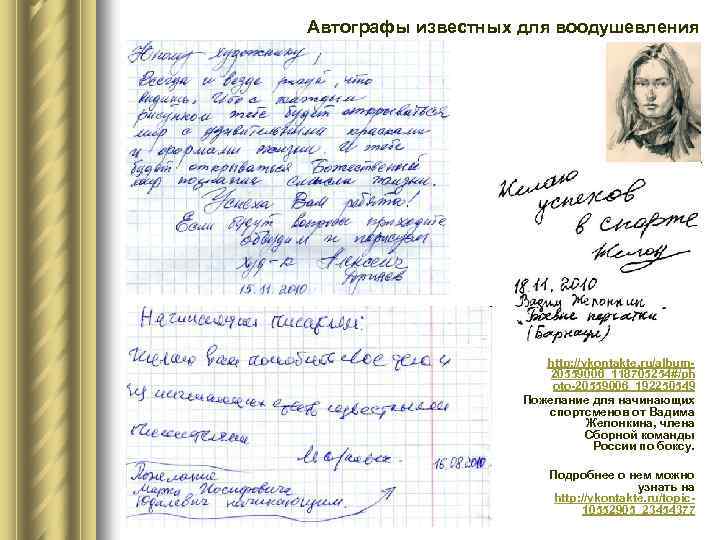 Автографы известных для воодушевления
Юному художнику!
Всегда и везде рисуй, что
видишь. Ибо с каждым
рисунком тебе будет открываться
мир с удивительными красками
и формами жизни. И тебе
будет открываться Божественный
мир познания смысла жизни.
Успеха Вам ребята!
Если будут вопросы приходите
обсудим и порисуем
худ-к Алексей
15.11.2010
Начинающим писателям:
Желаю вам полюбить свое дело и
из начинающих стать известными
писателями
16.08.2010
Пожелание
Марка Иосифовича
Юдалевича начинающим.
Желаю
успехов
в спорте
18.11.2010
Вадим Желонкин
"Боевые перчатки"
(Барнаул)
http://vkontakte.ru/album-
20559006_118705254#/ph
oto-20559006_192250549
Пожелание для начинающих
спортсменов от Вадима
Желонкина, члена
Сборной команды
России по боксу.
Подробнее о нем можно
узнать на
http://vkontakte.ru/topic-
10552905_23454377